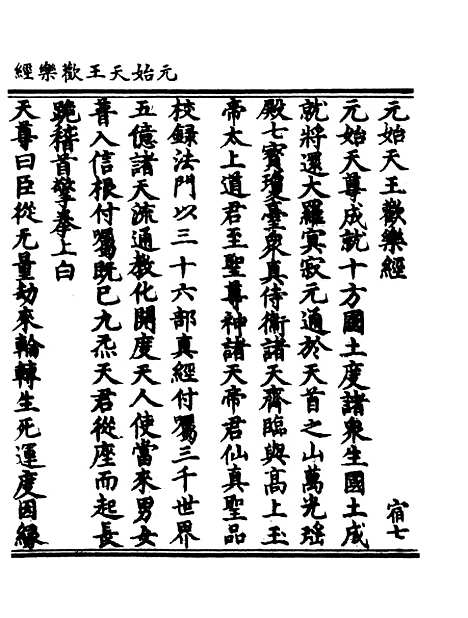 元始天王歡樂經
元始天王歡樂經　宿七
元始天尊成就十方國土度諸衆生國土成
就將還大羅寘寂元通於天首之山萬光瑶
殿七寶瓊臺衆真侍衞諸天齊臨與髙上玉
帝太上道君至聖尊神諸天帝君仙真聖品
校録法門以三十六部真經付囑三千世界
五億諸天流通教化開度天人使當來男女
普入信根付囑既已九炁天君從座而起長
跪稽首擎拳上白
天尊曰臣從无量劫來輪轉生死運度因緣